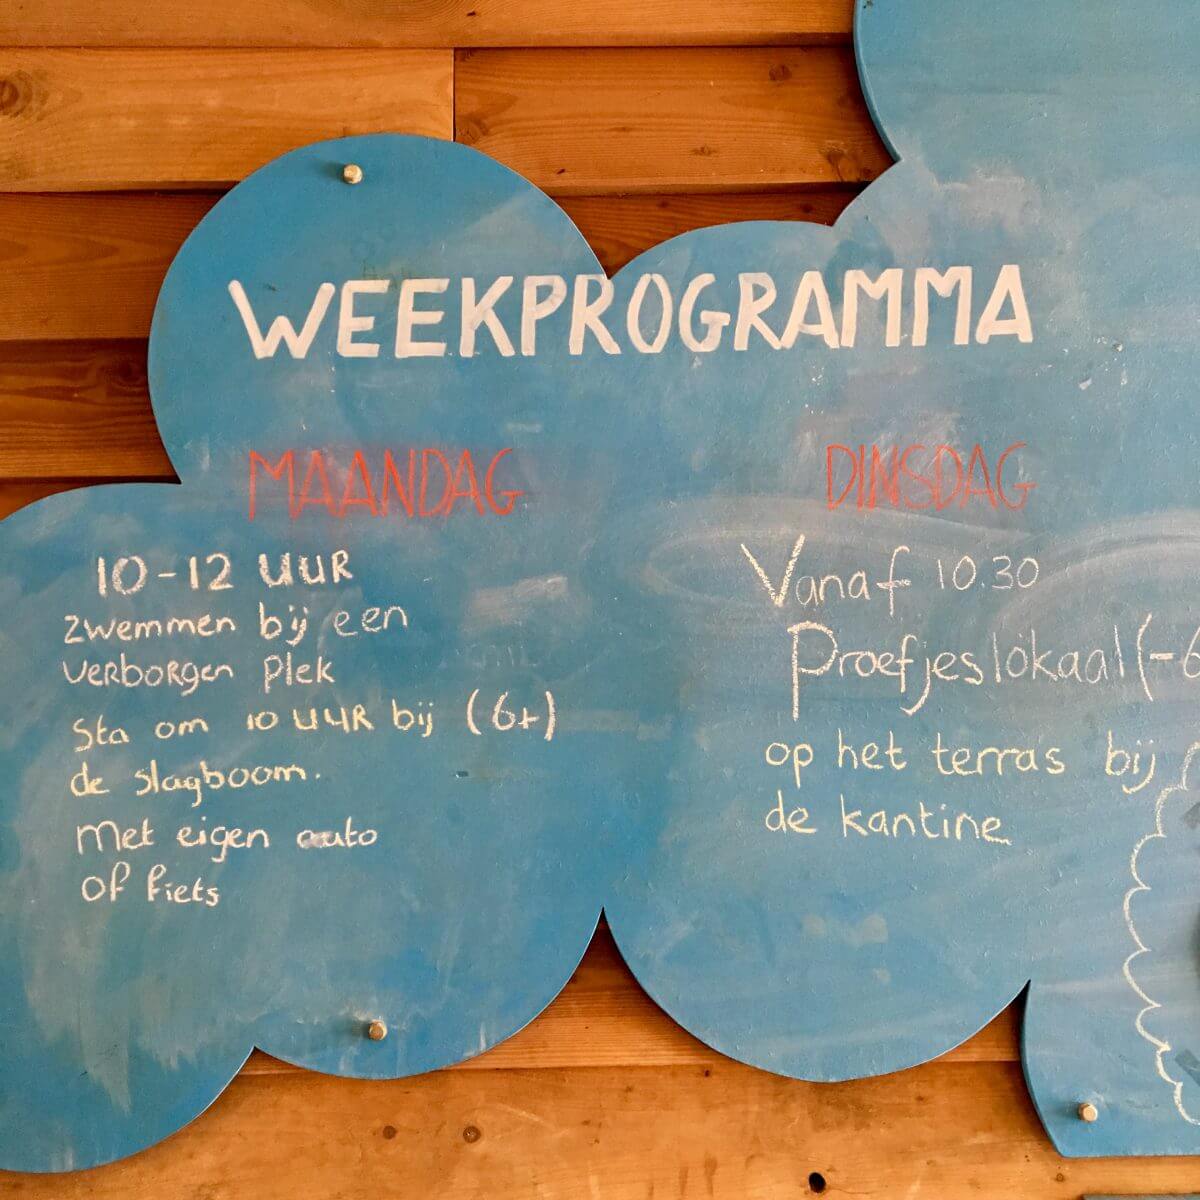 WEEKPROGRAMMA
MAANDAG
10-12 UUR
Zwemmen bij een
verborgen plek
Sta om 10 UUR bij (6+)
de slagboom.
Met eigen auto
of fiets
DINSDAG
Vanaf 10.30
Proefjeslokaal (-6
op het terras bij
de kantine